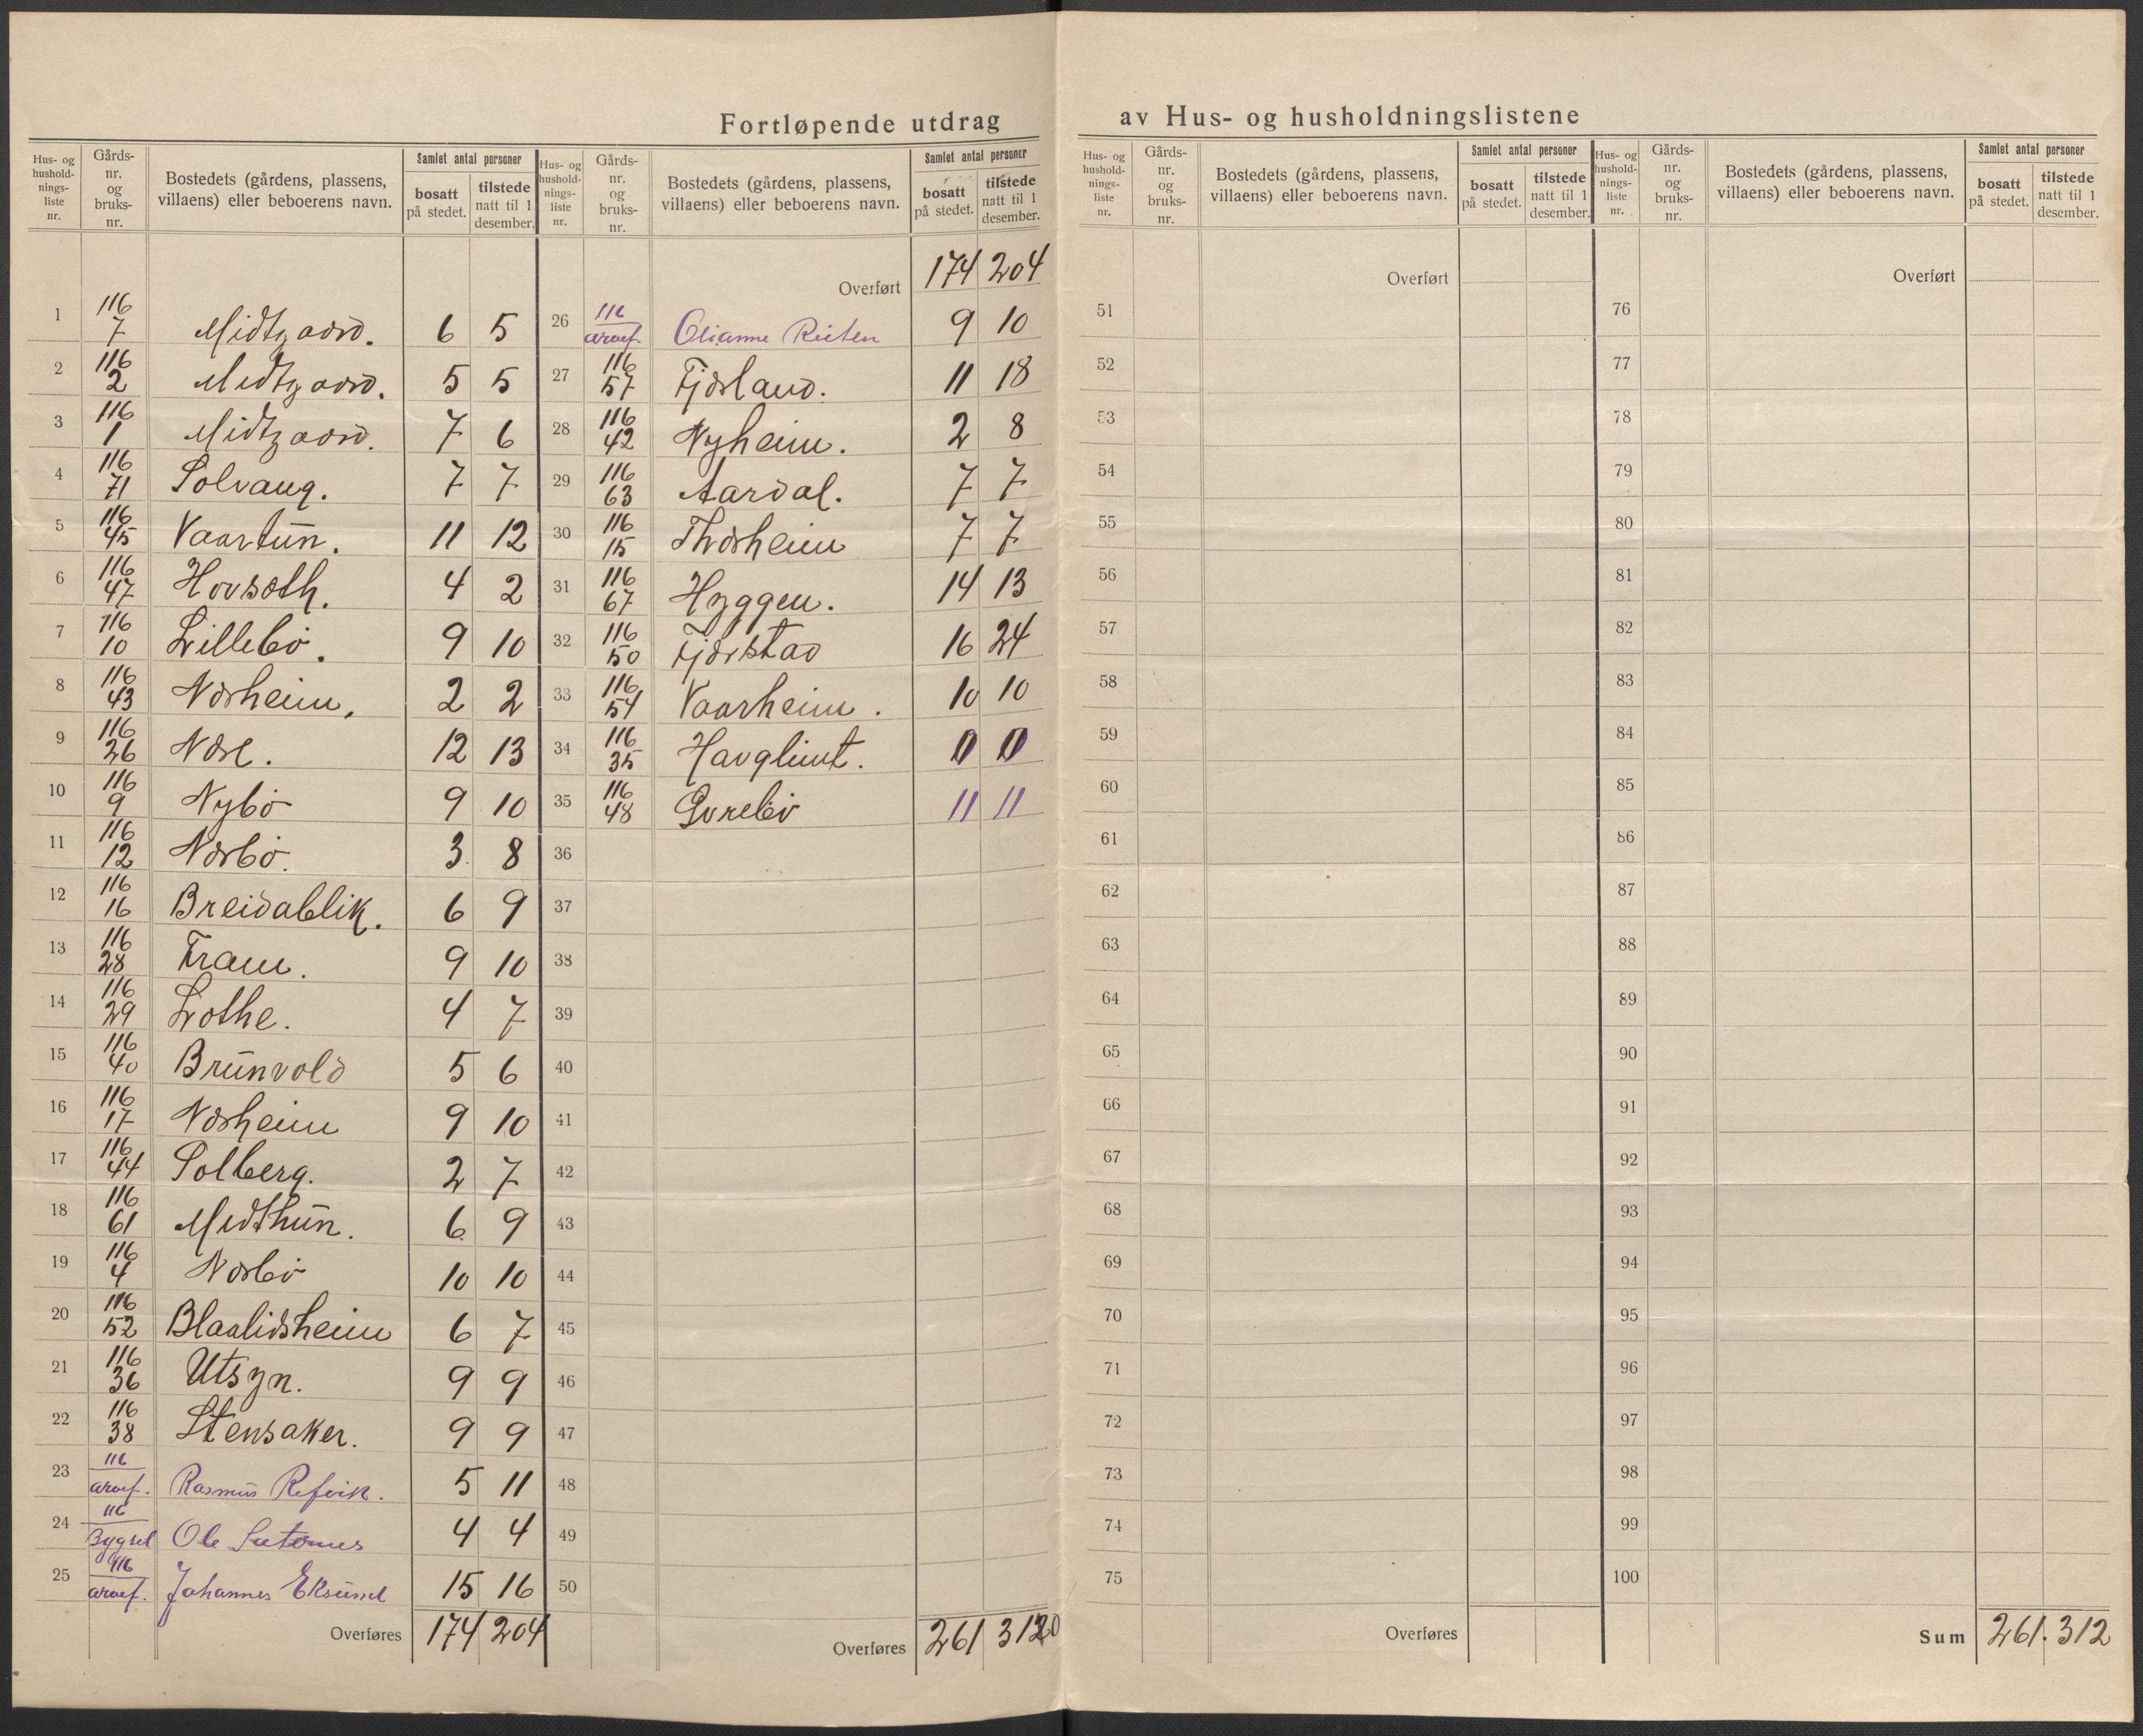 Fortløpende utdrag av Hus- og husholdningslistene
Hus- og hushold-nings-liste nr. | Gårds-nr. og bruks-nr. | Bostedets (gårdens, plassens, villaens) eller beboerens navn. | Samlet antal personer | bosatt på stedet. | tilstede natt til 1 desember.
1 116/7 Midtgaard. 6 5
2 116/2 Midtgaard. 5 5
3 116/1 Midtgaard. 7 6
4 116/71 Solvang. 7 7
5 116/45 Vaartun. 11 12
6 116/47 Hovsæth. 4 2
7 116/10 Lillebö. 9 10
8 116/43 Næsheim. 2 2
9 116/26 Næsl. 12 13
10 116/9 Nybö 9 10
11 116/12 Næsbö. 3 8
12 116/16 Breidablik. 6 9
13 116/28 Fram. 9 10
14 116/29 Lothe. 4 7
15 116/40 Brunvold 5 6
16 116/17 Næsheim 9 10
17 116/44 Solberg. 2 7
18 116/61 Midthun. 6 9
19 116/4 Næsbö 10 10
20 116/52 Blaalidsheim 6 7
21 116/36 Utsyn. 9 9
22 116/38 Stensaker. 9 9
23 116/arvef. Rasmus Refvik. 5 11
24 116/Bygsel Ole 4 4
25 116/arvef. Johannes Eksund 15 16
Overføres 174 204
Hus- og hushold-nings-liste nr. | Gårds-nr. og bruks-nr. | Bostedets (gårdens, plassens, villaens) eller beboerens navn. | Samlet antal personer | bosatt på stedet. | tilstede natt til 1 desember.
Overført 174 204
26 116/arvef. Olianne Reiten 9 10
27 116/57 Fjærland. 11 18
28 116/42 Nyheim. 2 8
29 116/63 Aardal. 7 7
30 116/15 Thorheim 7 7
31 116/67 Hyggen. 14 13
32 116/50 Fjørstad 16 24
33 116/54 Vaarheim. 10 10
34 116/35 Havglimt. 0 0
35 116/48 Gurebö 11 11
36
37
38
39
40
41
42
43
44
45
46
47
48
49
50
Overføres 261 312
Hus- og hushold-nings-liste nr. | Gårds-nr. og bruks-nr. | Bostedets (gårdens, plassens, villaens) eller beboerens navn. | Samlet antal personer | bosatt på stedet. | tilstede natt til 1 desember.
Overført
51
52
53
54
55
56
57
58
59
60
61
62
63
64
65
66
67
68
69
70
71
72
73
74
75
Overføres
Hus- og hushold-nings-liste nr. | Gårds-nr. og bruks-nr. | Bostedets (gårdens, plassens, villaens) eller beboerens navn. | Samlet antal personer | bosatt på stedet. | tilstede natt til 1 desember.
Overført
76
77
78
79
80
81
82
83
84
85
86
87
88
89
90
91
92
93
94
95
96
97
98
99
100
Sum 261. 312